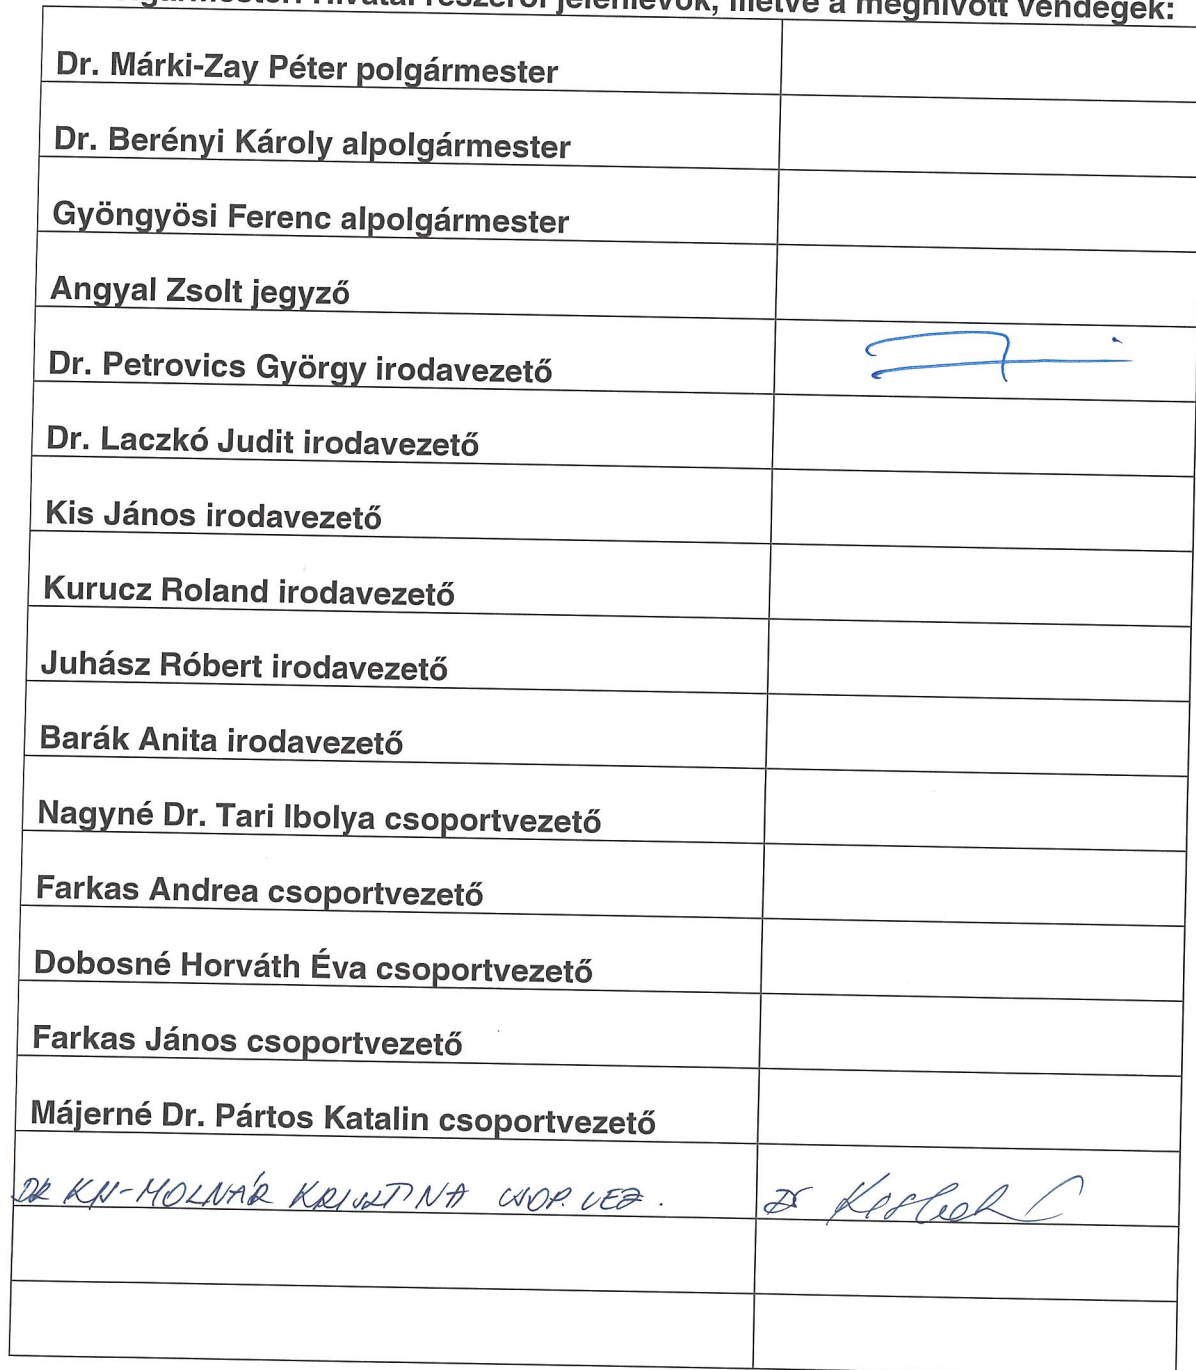 részéről jelenlévők, illetve a meghívott vendégek:
Dr. Márki-Zay Péter polgármester
Dr. Berényi Károly alpolgármester
Gyöngyösi Ferenc alpolgármester
Angyal Zsolt jegyző
Dr. Petrovics György irodavezető
Dr. Laczkó Judit irodavezető
Kis János irodavezető
Kurucz Roland irodavezető
Juhász Róbert irodavezető
Barák Anita irodavezető
Nagyné Dr. Tari Ibolya csoportvezető
Farkas Andrea csoportvezető
Dobosné Horváth Éva csoportvezető
Farkas János csoportvezető
Májerné Dr. Pártos Katalin csoportvezető
DR MOLNÁR KRISZTINA CSOP. VEZ.